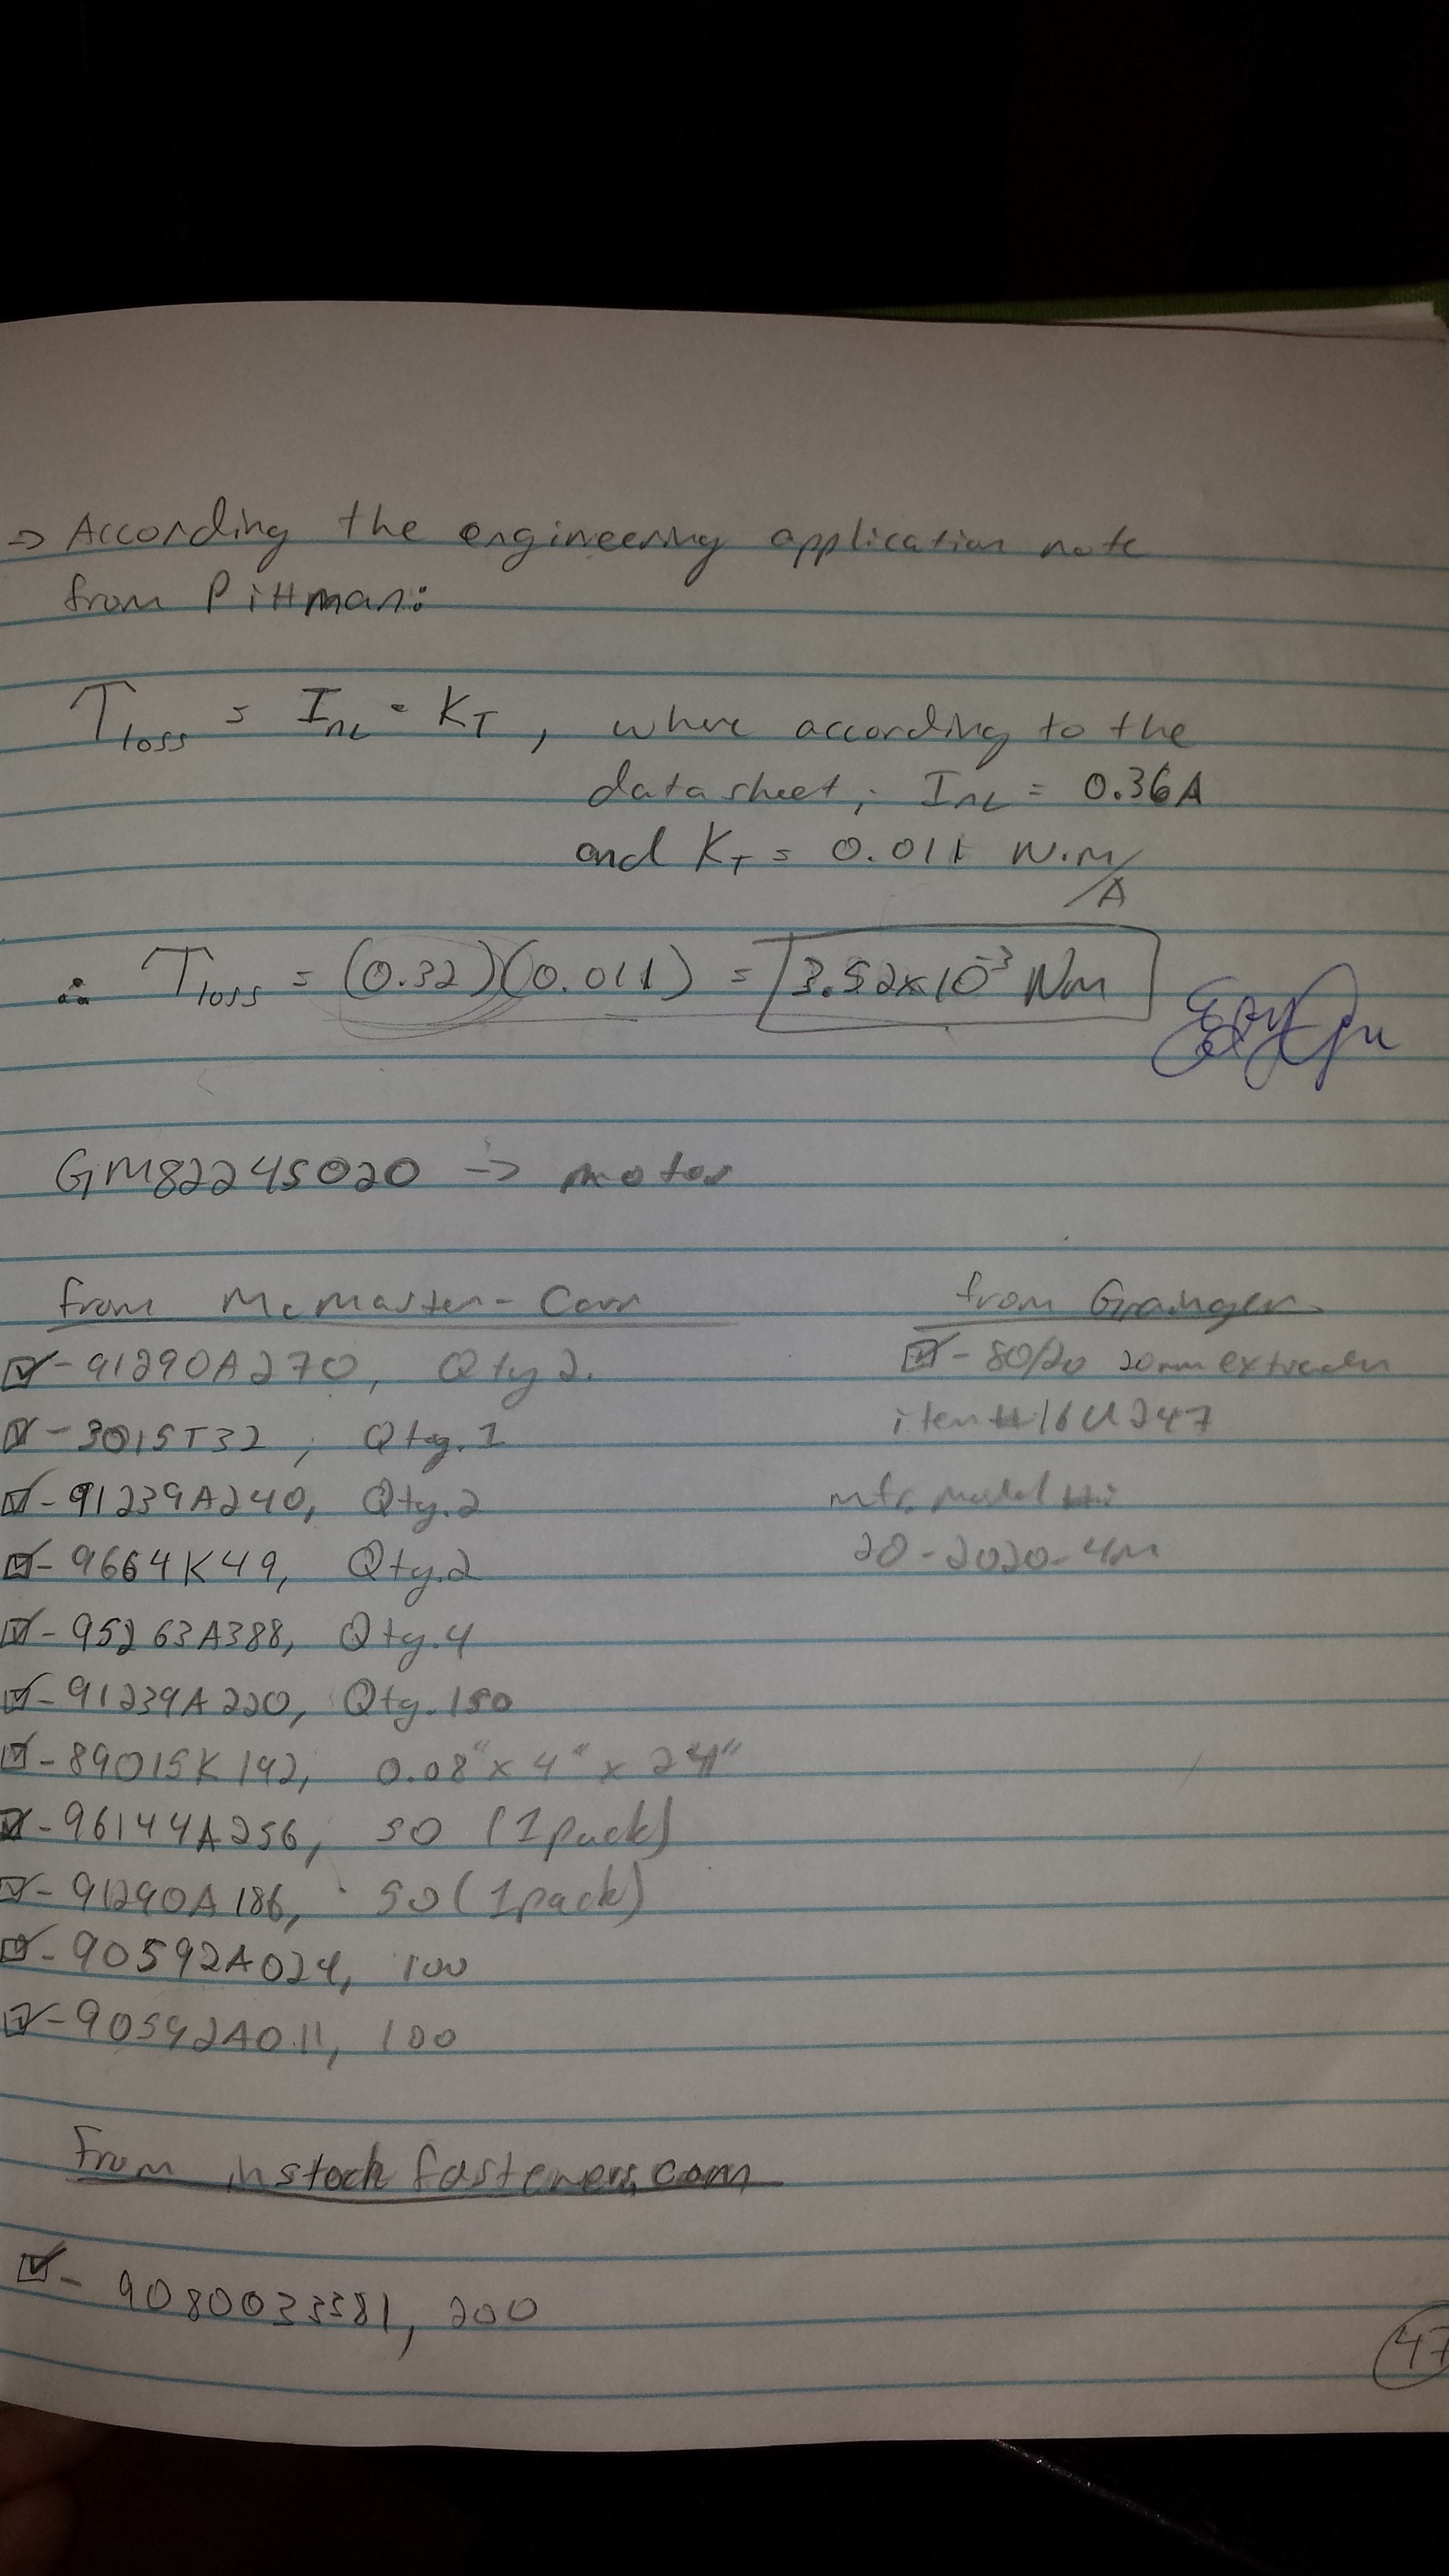 ⇒ According the engineering application note
from Pittman:
T_loss = I_NL · K_T, where according to the
datasheet, I_NL = 0.36A
and K_T = 0.011 N·m/A
∴ T_loss = (0.32)(0.011) = 3.52x10^-3 Nm
GM82245020 → motor
from McMaster-Carr
☑-91290A270, Qty 2.
☑-3015T32, Qty.1
☑-91239A240, Qty.2
☑-9664K49, Qty.2
☑-95263A388, Qty.4
☑-91239A220, Qty.150
☑-89015K192, 0.08" x 4" x 24"
☑-96144A256, 50 (1pack)
☑-91290A186, 50 (1pack)
☑-90592A024, 100
☑-90592A011, 100
from Grainger
☑-80/20 20mm
item#16U247
mfr. model #:
20-2020-4M
From instockfasteners.com
☑- 200
47